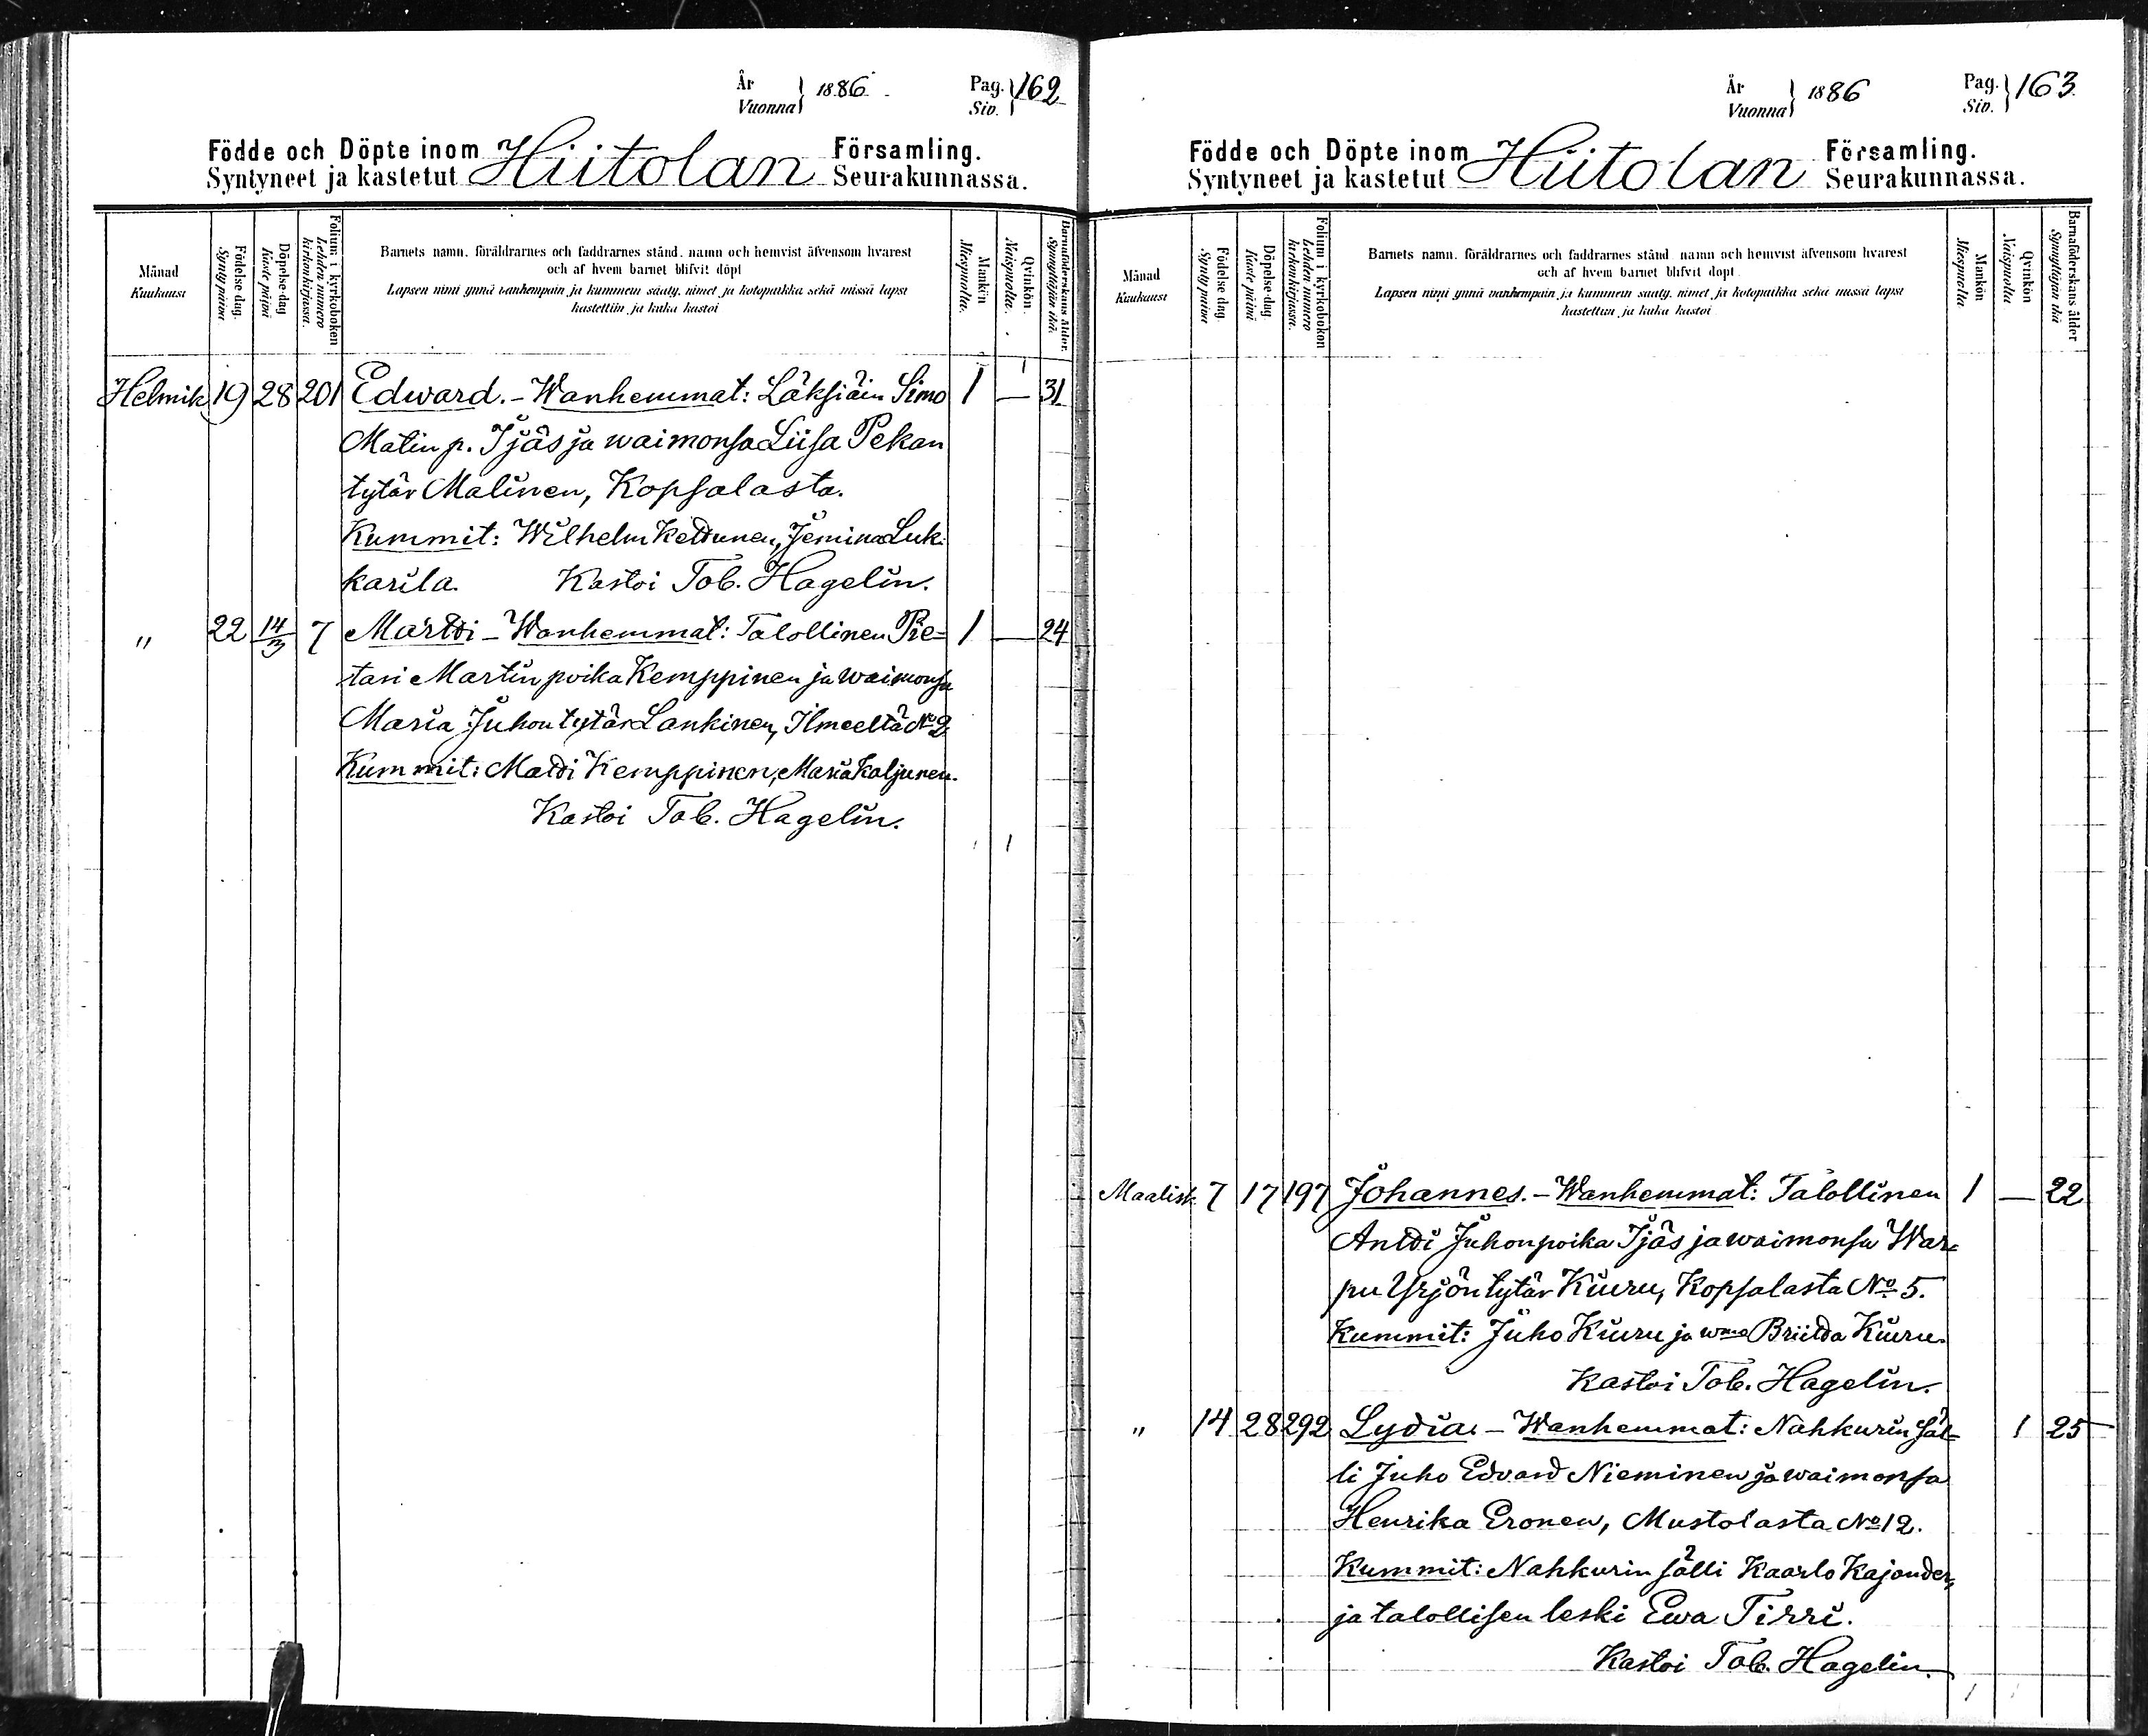 År
Vuonna } 1886
Pag.
Siv. } 162
Födde och Döpte inom Hiitolan Församling.
Syntyneet ja kastetut Seurakunnassa.
Månad
Kuukausi
Födelse dag.
Synty päivä
Döpelse-dag
Kaste päivä
Folium i kyrkoboken
Lehden numero
kirkonkirjassa.
Barnets namn, föräldrarnes och faddrarnes stånd, namn och hemvist äfvensom hvarest
och af hvem barnet blifvit döpt
Lapsen nimi ynnä vanhempain ja kummein sääty, nimet ja kotopaikka sekä missä lapsi
kastettiin ja kuka kastoi
Mankön
Miespuolia.
Qvinkön.
Naispuolia.
Barnaföderskans ålder.
Synnyttäjän ikä.
Helmik 19 28 201 Edward. - Wanhemmat: Läksiäin Simo 1 — 31
Matin p. Ijäs ja waimonsa Liisa Pekan
tytär Malinen, Kopsalasta.
Kummit: Wilhelm Kettunen, Jemina Luk-
karila. Kastoi Tob. Hagelin.
" 22 14/3 7 Martti - Wanhemmat: Talollinen Pie= 1 — 24
tari Martin poika Kemppinen ja waimonsa
Maria Juhon tytär Lankinen, Ilmeeltä No 2
Kummit: Matti Kemppinen, Maria Kaljunen.
Kastoi Tob. Hagelin.
År
Vuonna } 1886
Pag.
Siv. } 163
Födde och Döpte inom Hiitolan Församling.
Syntyneet ja kastetut Seurakunnassa.
Månad
Kuukausi
Födelse dag.
Synty päivä
Döpelse-dag
Kaste päivä
Folium i kyrkoboken
Lehden numero
kirkonkirjassa.
Barnets namn, föräldrarnes och faddrarnes stånd, namn och hemvist äfvensom hvarest
och af hvem barnet blifvit döpt.
Lapsen nimi ynnä vanhempain ja kummein sääty, nimet ja kotopaikka sekä missä lapsi
kastettiin ja kuka kastoi
Mankön
Miespuolia
Qvinkön
Naispuolia.
Barnaföderskans ålder
Synnyttäjän ikä
Maalisk. 7 17 197 Johannes. - Wanhemmat: Talollinen 1 — 22
Antti Juhonpoika Ijäs ja waimonsa War=
pu Yrjön tytär Kiuru, Kopsalasta No 5.
Kummit: Juho Kiuru ja wmo Briitta Kiuru.
Kastoi Tob. Hagelin.
" 14 28 292 Lydia. - Wanhemmat: Nahkurin säl= 1 25
li Juho Edvard Nieminen ja waimonsa
Henrika Eronen, Mustolasta No 12.
Kummit: Nahkurin sälli Kaarlo Kajander,
ja talollisen leski Ewa Tirri.
Kastoi Tob. Hagelin.